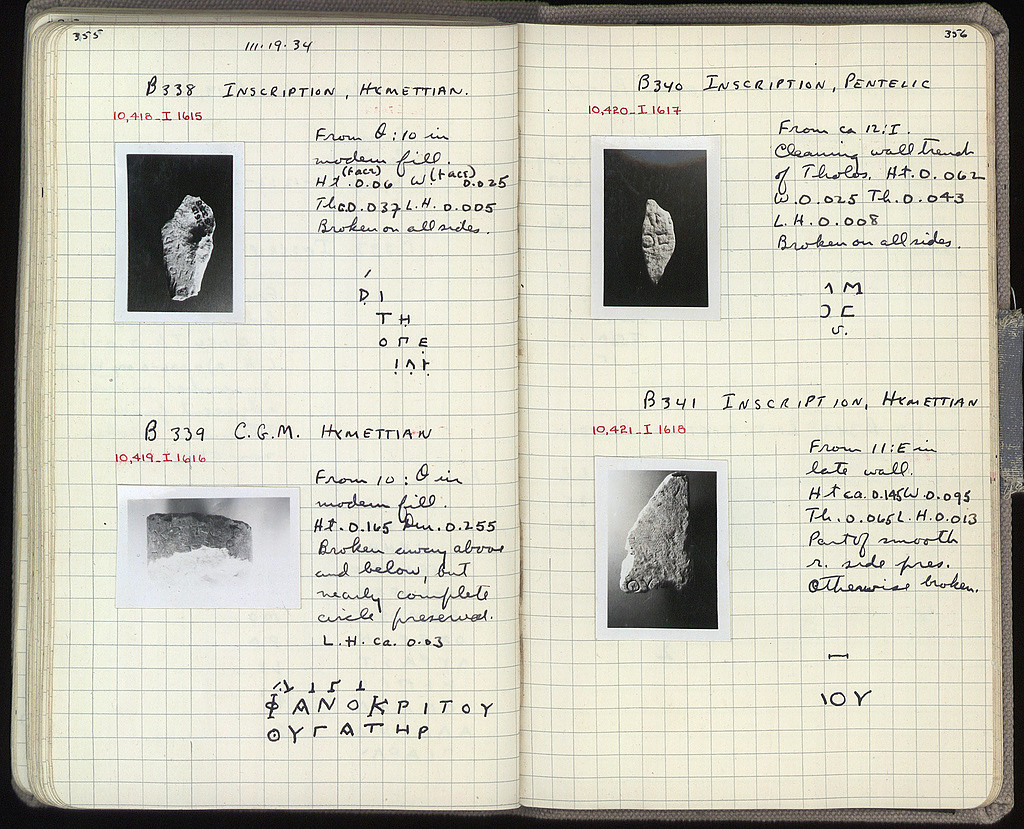 355
111·19·34
B338 INSCRIPTION, HYMETTIAN.
10,418_I 1615
From Θ:10 in
modern fill.
(+acr) (+acr)
Ht.0.06 W. 0.025
Th.0.037 L.H. 0.005
Broken on all sides.
Τ Η
Ο Γ Ε
B 339 C.G.M. HYMETTIAN
10,419_I 1616
From 10:Θ in
modern fill.
Ht.0.165 Dm.0.255
Broken away above
and below, but
nearly complete
circle preserved.
L.H. ca. 0.03
Φ Α Ν Ο Κ Ρ Ι Τ Ο Υ
Θ Υ Γ Α Τ Η Ρ
356
B340 INSCRIPTION, PENTELIC
10,420_I 1617
From ca 12:I.
Cleaning wall trench
of Tholos. Ht.0.062
W.0.025 Th.0.043
L.H. 0.008
Broken on all sides.
B341 INSCRIPTION, HYMETTIAN
10,421_I 1618
From 11:E in
late wall.
Ht ca. 0.145 W.0.095
Th.0.065 L.H.0.013
Part of smooth
r. side pres.
Otherwise broken.
Ι Ο Υ